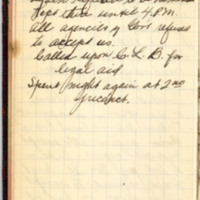 kept there until 4 P.M.
All agencies of Govt refused
to accept us.
Called upon C. L. B. for
legal aid
Spent night again at 2nd
Precinct.